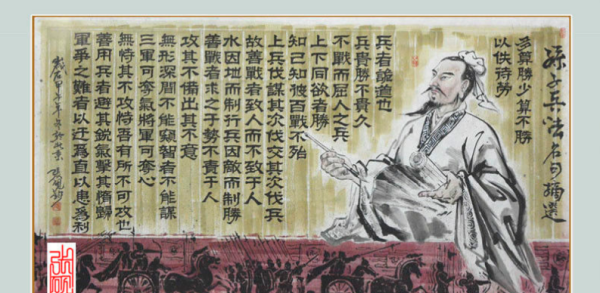 孫子兵法名句摘選
多算勝少算不勝
以佚待勞
兵者詭道也
兵貴勝不貴久
不戰而屈人之兵
上下同欲者勝
知己知彼百戰不殆
上兵伐謀其次伐交其次伐兵
故善戰者致人而不致于人
水因地而制行兵因敵而制勝
善戰者求之于勢不責于人
攻其不備出其不意
無形深間不能窺智者不能謀
三軍可奪氣將軍可奪心
無恃其不攻恃吾有所不可攻也
善用兵者避其銳氣擊其惰歸
軍爭之難者以迂爲直以患爲利